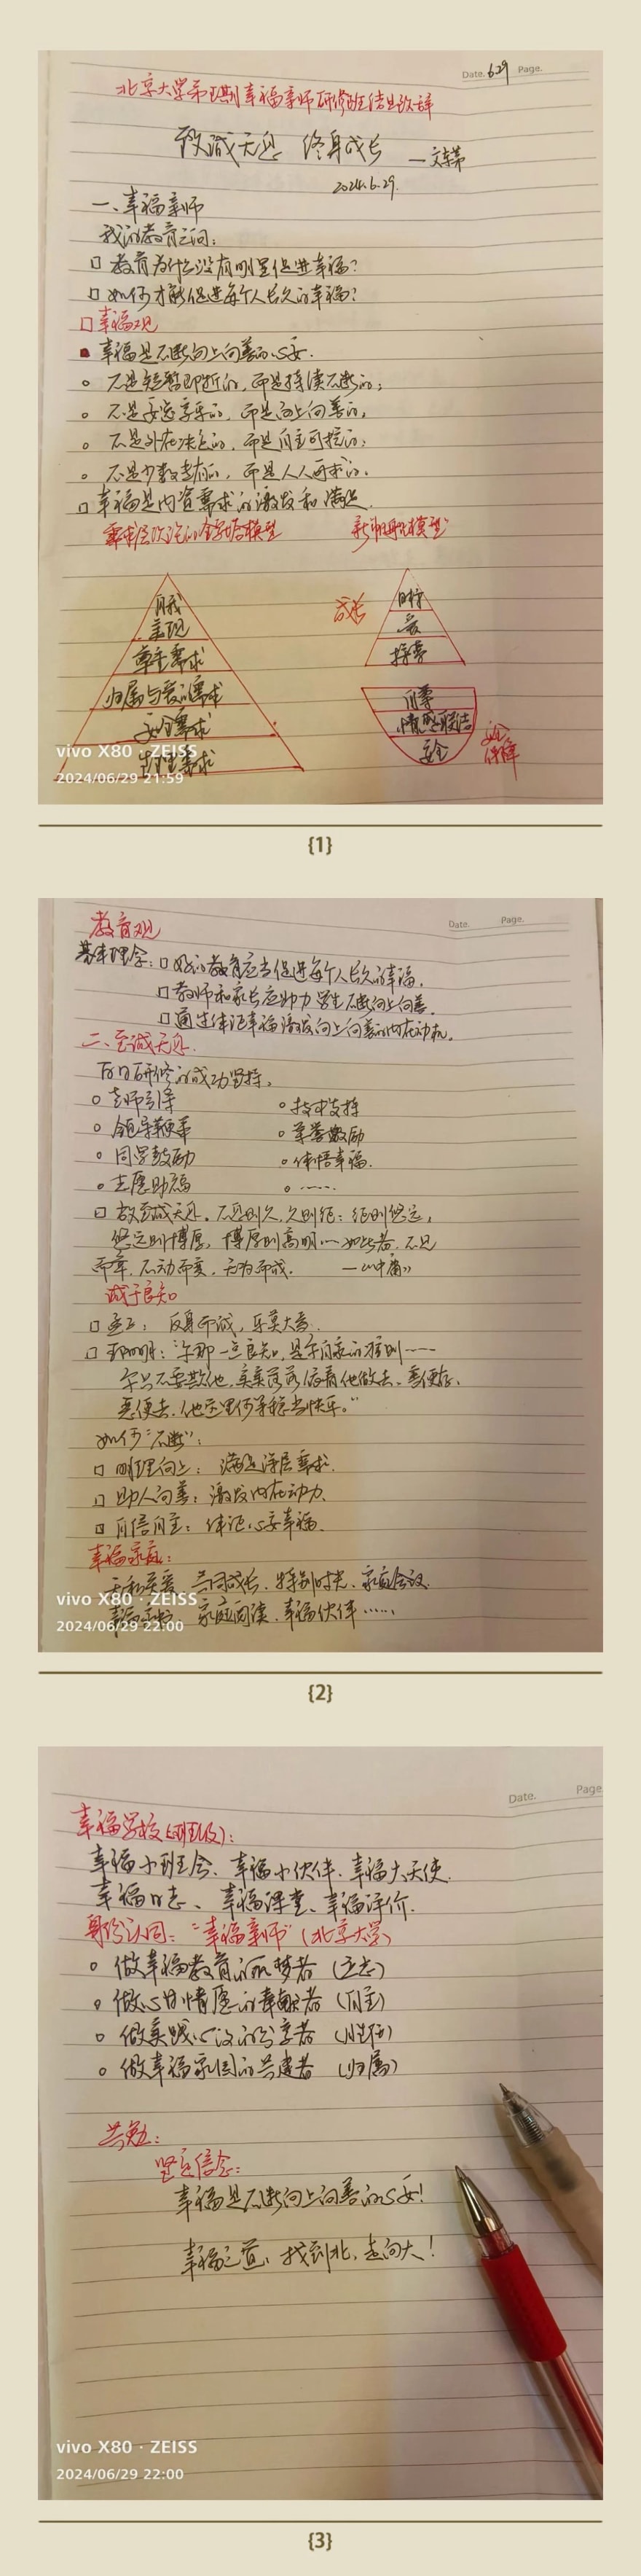 Date. 6.29 Page.
北京大学第四期幸福亲师研修班结业致辞
致诚无息 终身成长 —文东茅
2024.6.29.
一、幸福亲师
我的教育之问:
□ 教育为什么没有明显促进幸福?
□ 如何才能促进每个人长久的幸福?
□ 幸福观
■ 幸福是不断向上向善的心安.
○ 不是短暂即逝的, 而是持续不断的;
○ 不是安逸享乐的, 而是向上向善的;
○ 不是外在决定的, 而是自主可控的;
○ 不是少数专有的, 而是人人可求的.
□ 幸福是内容需求的激发和满足.
需求层次论的金字塔模型 新帆船模型
自我
实现
尊重需求
归属与爱的需求
安全需求
生理需求
成长
目标
爱
探索
自尊
情感联结
安全
安全
保障
vivo X80 · ZEISS
2024/06/29 21:59
{1}
Date. Page.
教育观
基本理念: □ 好的教育应当促进每个人长久的幸福.
□ 教师和家长应助力学生不断向上向善.
□ 通过体证幸福激发向上向善的内在动机.
二、至诚无息.
百日研修的成功坚持.
○ 老师引导 ○ 技术支持
○ 领导鞭策 ○ 荣誉激励
○ 同学鼓励 ○ 体悟幸福.
○ 志愿助福 ○ ……
□ 故至诚无息。不息则久, 久则征; 征则悠远,
悠远则博厚, 博厚则高明… 如此者, 不见
而章, 不动而变, 无为而成. —《中庸》
诚于良知
□ 孟子: 反身而诚, 乐莫大焉.
□ 王阳明: "尔那一点良知, 是尔自家的准则……
尔只不要欺他, 实实落落依着他做去、善便存,
恶便去. 他这里何等稳当快乐。"
如何"不断":
□ 明理向上: 满足深层需求.
□ 助人向善: 激发内在动力.
□ 自信自主: 体证心安幸福.
幸福家庭:
无私关爱、共同成长、特别时光、家庭会议.
家庭阅读、幸福伙伴……
vivo X80 · ZEISS
2024/06/29 22:00
{2}
Date. Page
幸福学校(班级):
幸福小班会、幸福小伙伴、幸福大天使.
幸福日志、幸福课堂、幸福评价.
身份认同: "幸福亲师"(北京大学)
○ 做幸福教育的筑梦者 (立志)
○ 做心甘情愿的奉献者 (自主)
○ 做实践心法的分享者 (胜任)
○ 做幸福家园的共建者 (归属)
共勉:
坚定信念:
幸福是不断向上向善的心安!
幸福之道, 找到北, 走向大!
vivo X80 · ZEISS
2024/06/29 22:00
{3}